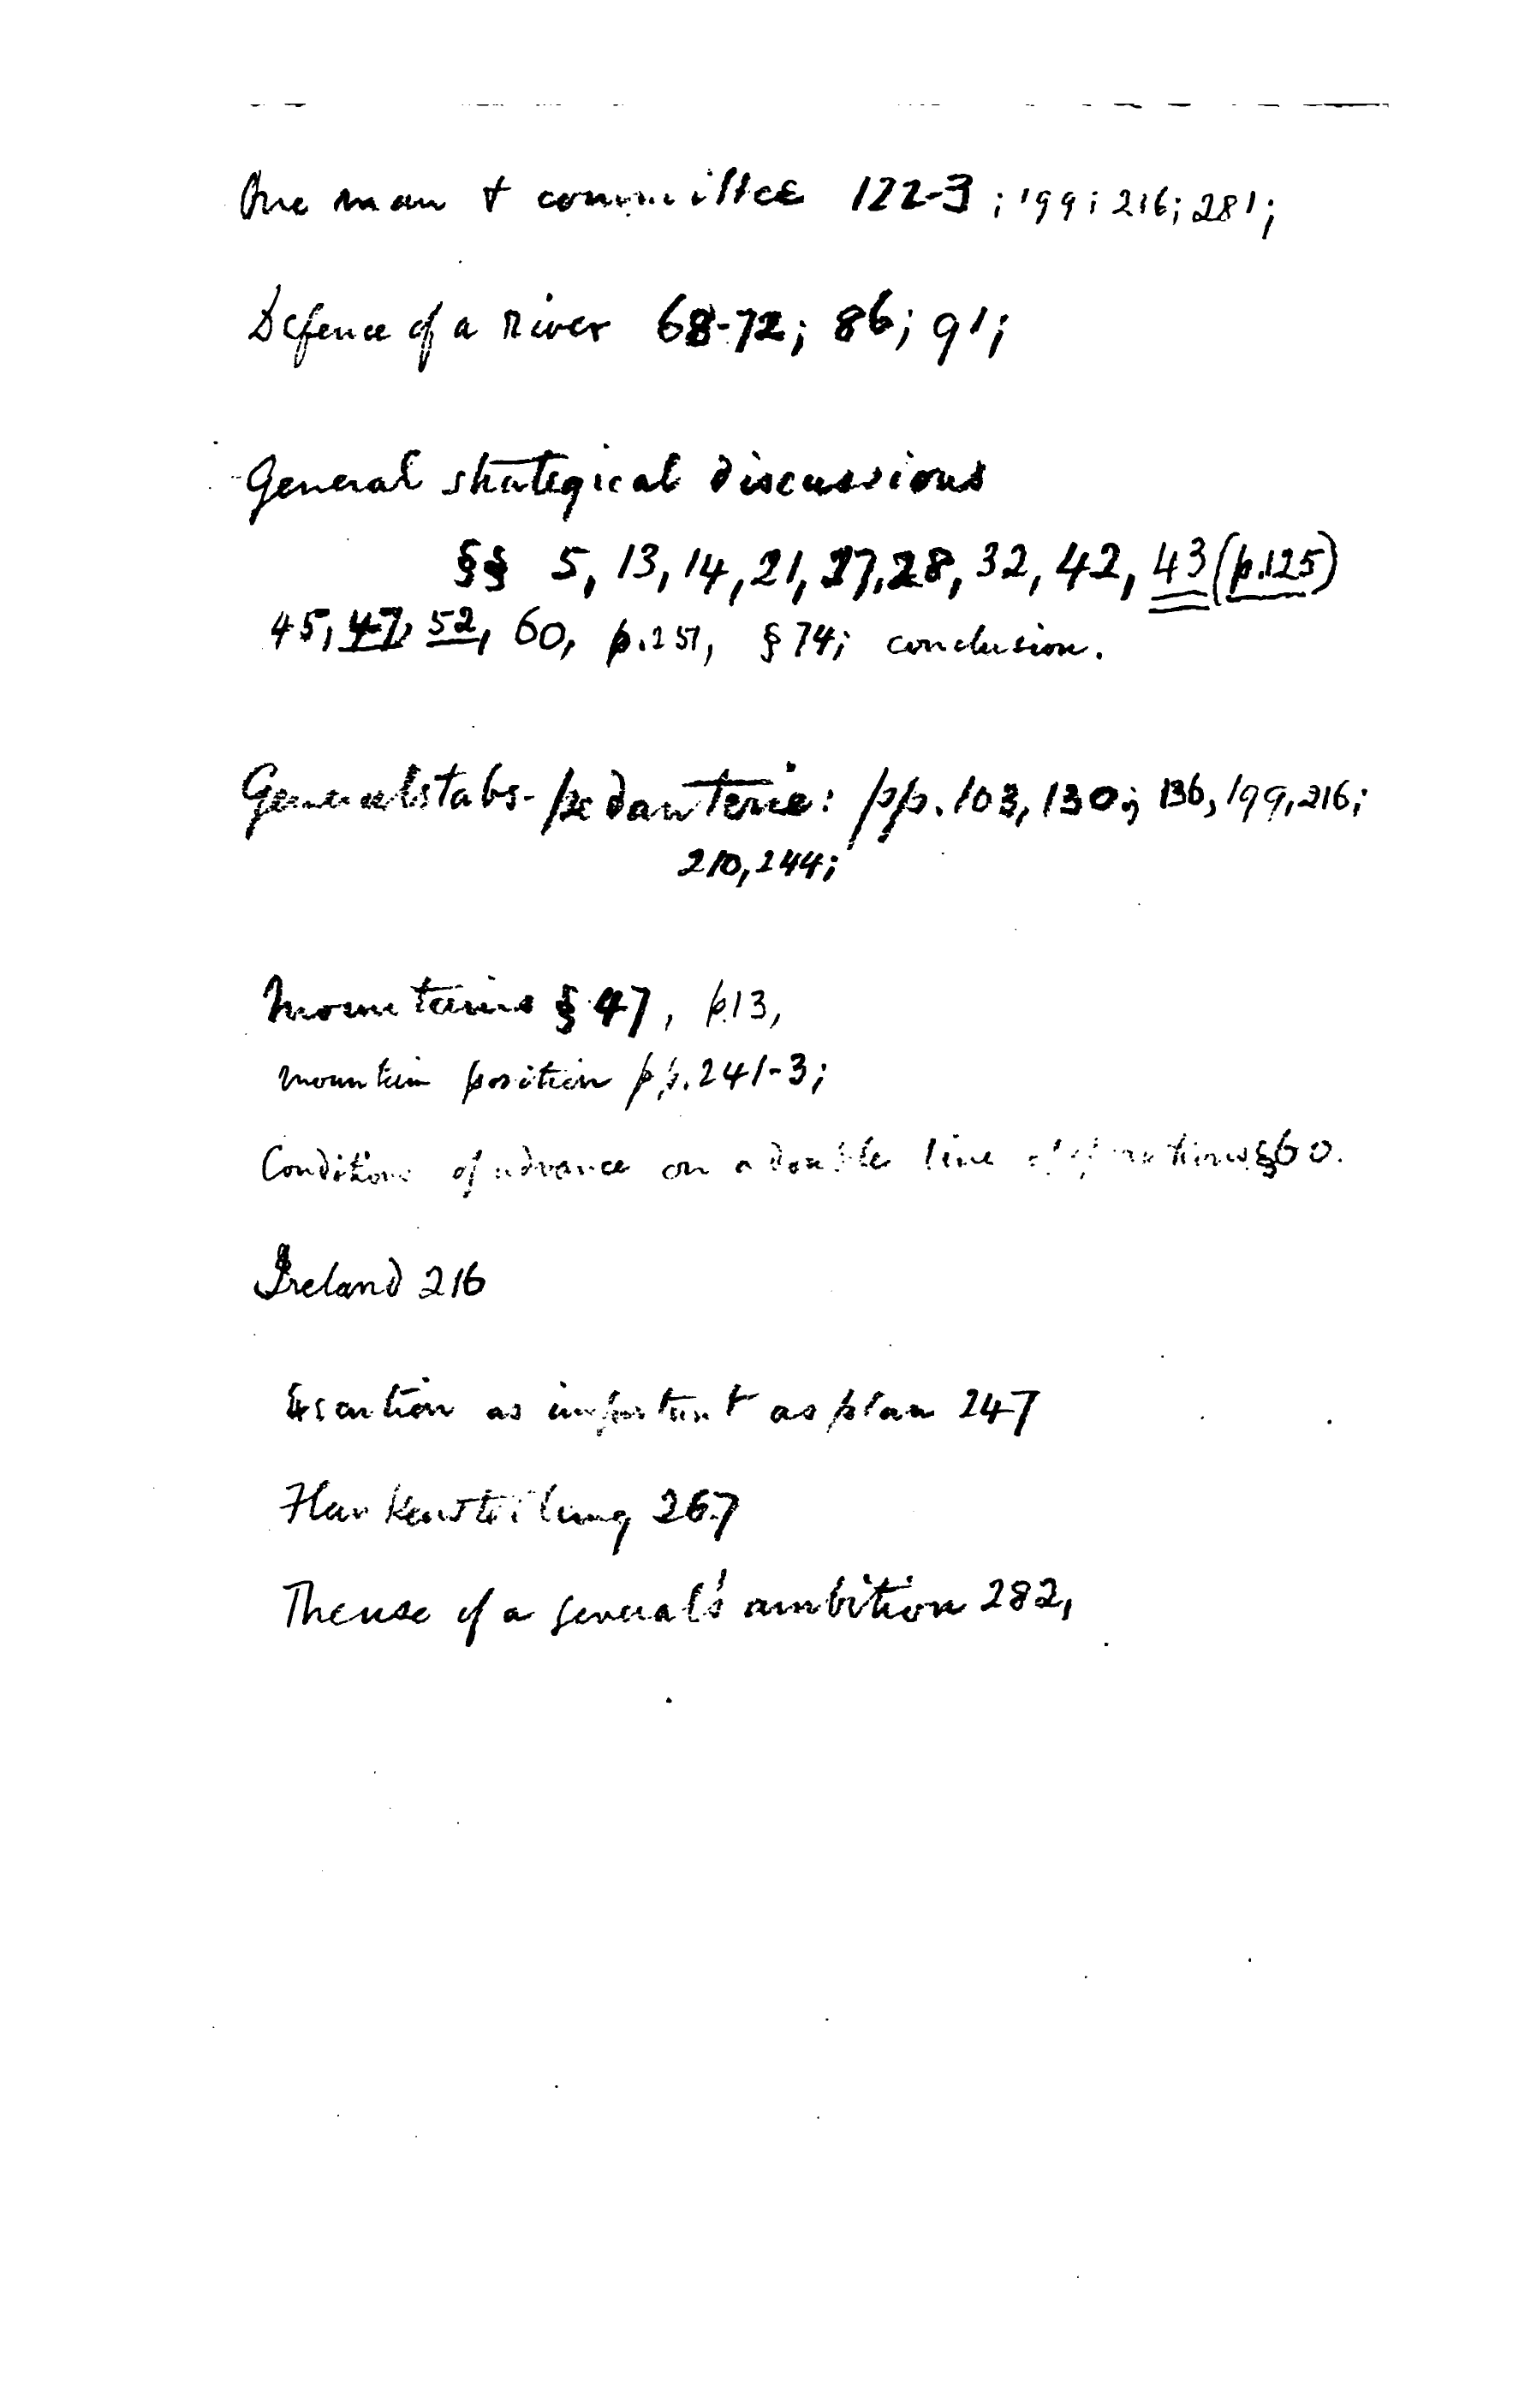 One man & committee 122-3; 199; 216; 281;
Defence of a River 68-72; 86; 91;
General strategical discussions
§§ 5, 13, 14, 21, 27, 28, 32, 42, 43 (p.125)
45, 47, 52, 60, p.251, § 74; conclusion.
Generalstabs-pedanterie: pp. 103, 130; 136, 199, 216;
210, 244;
Mountains § 47, p.13,
mountain position pp. 241-3;
Conditions of advance on a double line of operations § 60.
Ireland 216
Execution as important as plan 247
Flankenstellung 267
The use of a general's ambition 282,